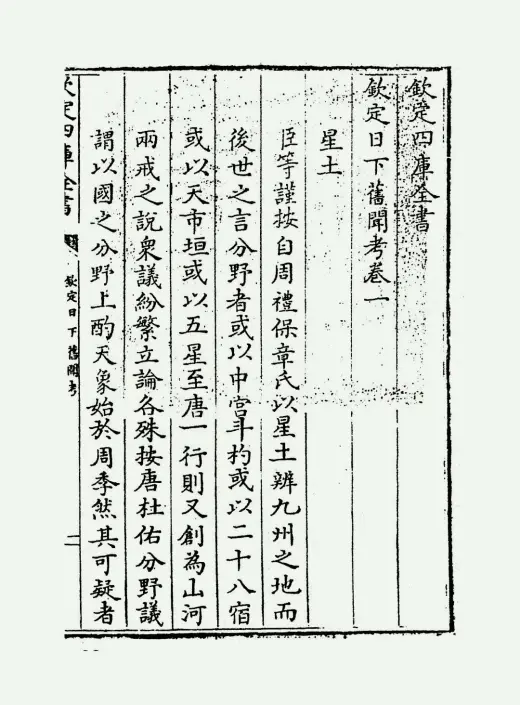 欽定四庫全書
欽定日下舊聞考卷一
星土
臣等謹按自周禮保章氏以星土辨九州之地而
後世之言分野者或以中宮斗杓或以二十八宿
或以天市垣或以五星至唐一行則又創為山河
兩戒之說衆議紛繁立論各殊按唐杜佑分野議
謂以國之分野上酌天象始於周季然其可疑者
欽定四庫全書
欽定日下舊聞考
一